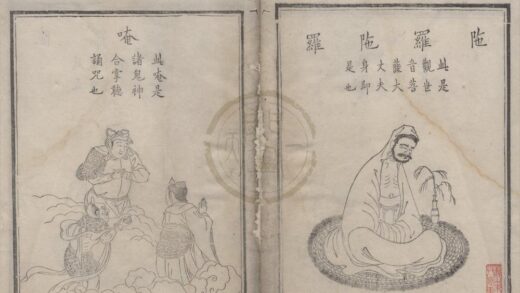 陁羅陁羅
此是
觀世
音菩
薩大
丈夫
身即
是也
唵
此唵是
諸鬼神
合掌聽
誦咒也